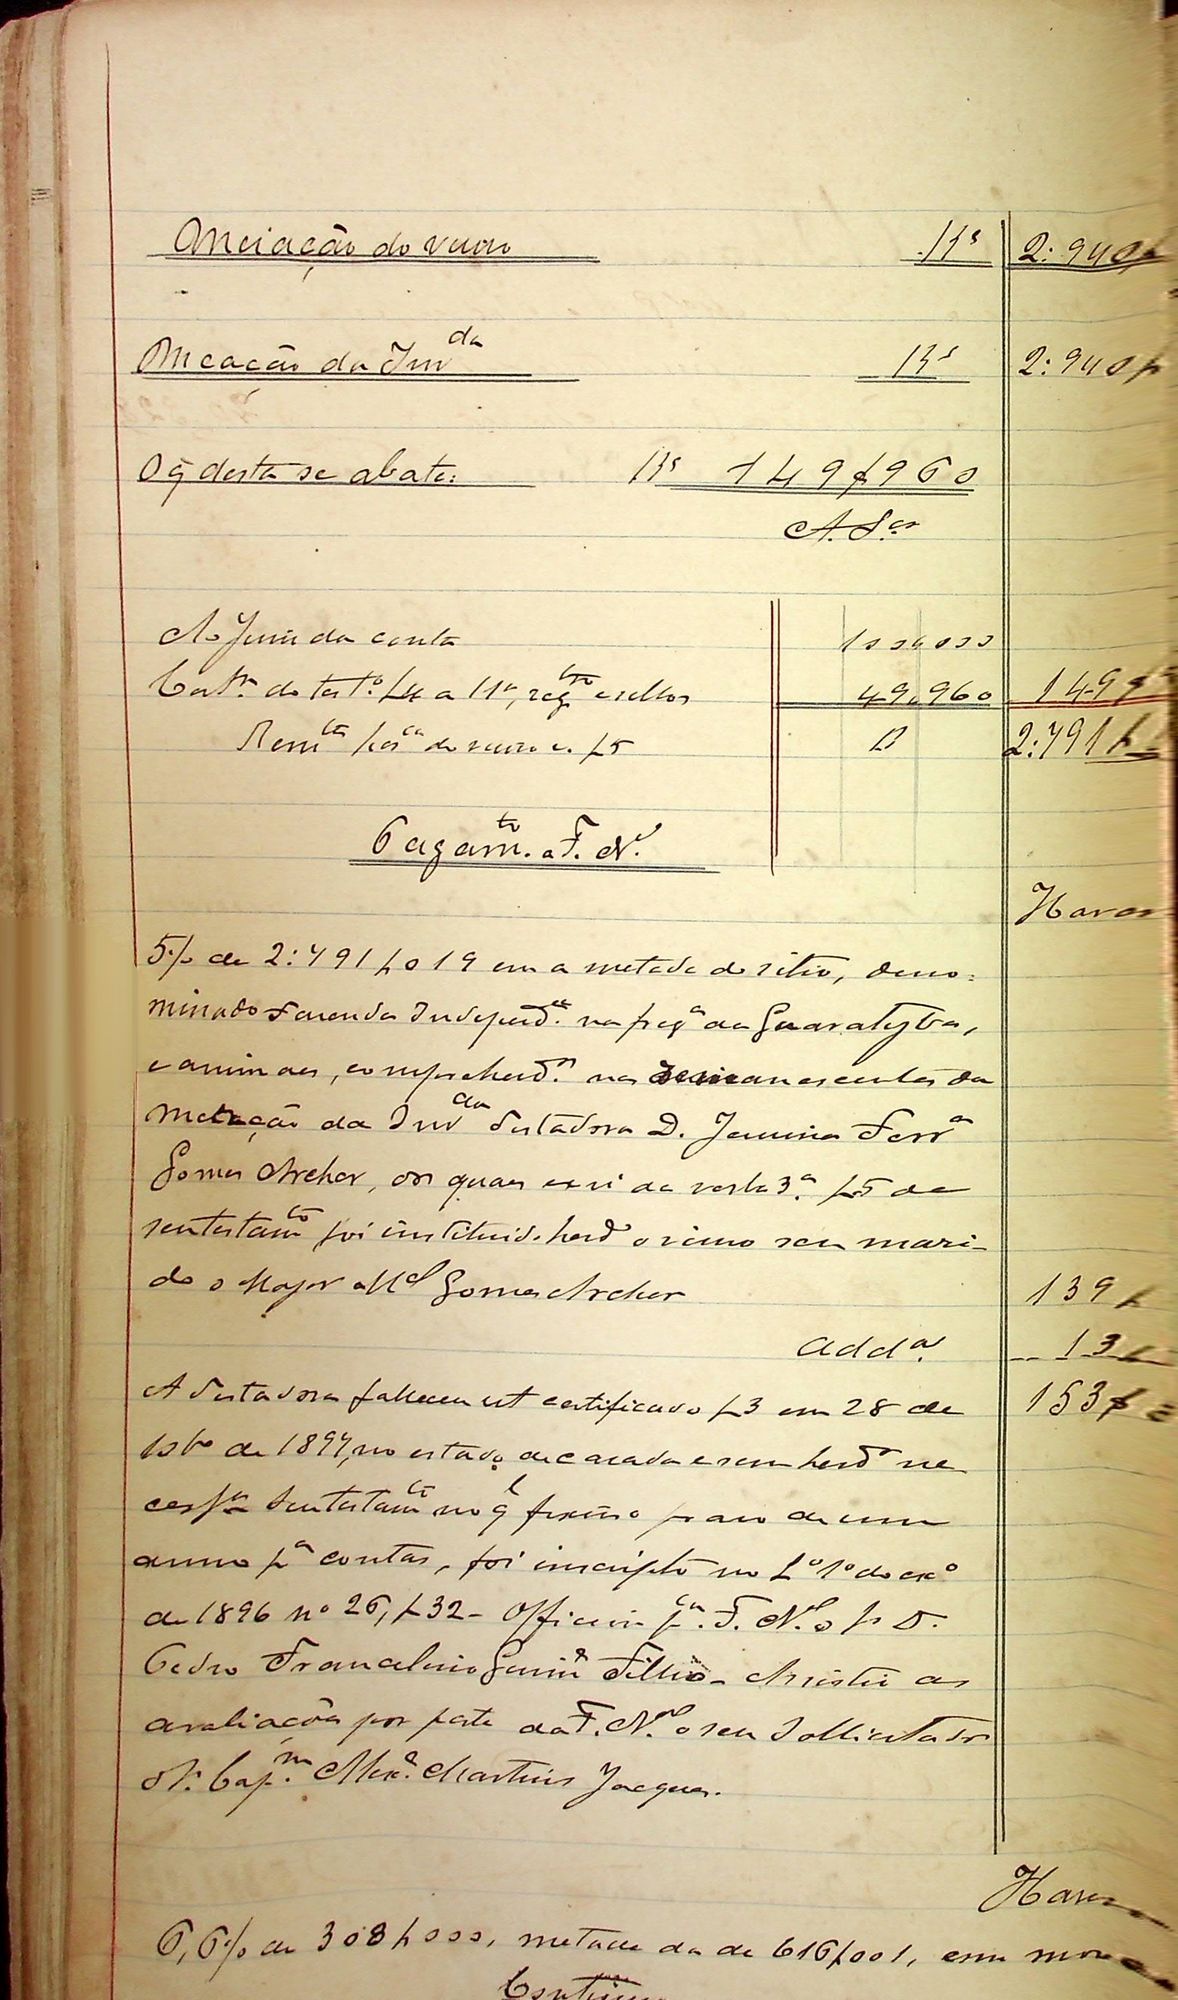 Meiação do viuvo Rs 2:940$
Meação da Invda Rs 2:940$
O q̃ desta se abate: Rs 149$960
A. Sar
Ao Juiz da conta 100$000
do testo. f4 a 11v, regtro e sellos 49.960 149$
do viuvo e. f5 2:791$
Pagamto. a F. Nal
Haver
5% de 2:791$019 em a metade do sitio, deno-
minado Fazenda Independca. na frega da Guaratyba,
e animaes, comprehendos. nos remanescentes da
Meação da Invda Testadora D. Jesuina Ferra
Gomes Archer, dos quaes ex vi da verba 3a. f5 de
seu testamto foi instituido herdo o viuvo seu mari-
do o Major Mel Gomes Archer 139$
Addal. 13$
A Testadora falleceu ut certificado f3 em 28 de 153$
de 1894, no estado de casada e sem herdos ne-
cessros testamto no ql fixou o praso de um
anno pa contas, foi inscripto no Lo 1o do exo
de 1896 no 26, f32 - Officiou pla. F. Nal o Dr.
Pedro Francelino Guimes Filho - Assistiu as
avaliações por parte da F. Nal o seu Sollicitador
o Capm. Alexe. Martins Jacques.
Haver
6,6% de 308$000, metade da de 616$001, em